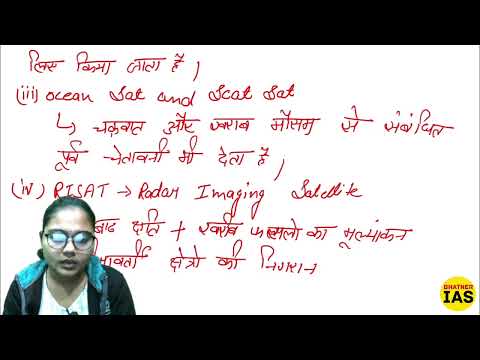 लिए किया जाता है।
(iii) ocean Sat and Scat Sat
↳ चक्रवात और खराब मौसम से संबंधित
पूर्व चेतावनी भी देता है।
(iv) RISAT → Radar Imaging Satellite
बाढ क्षति + खरीब फसलो का मूल्यांकन
क्षेत्रो की
BHATNER
IAS